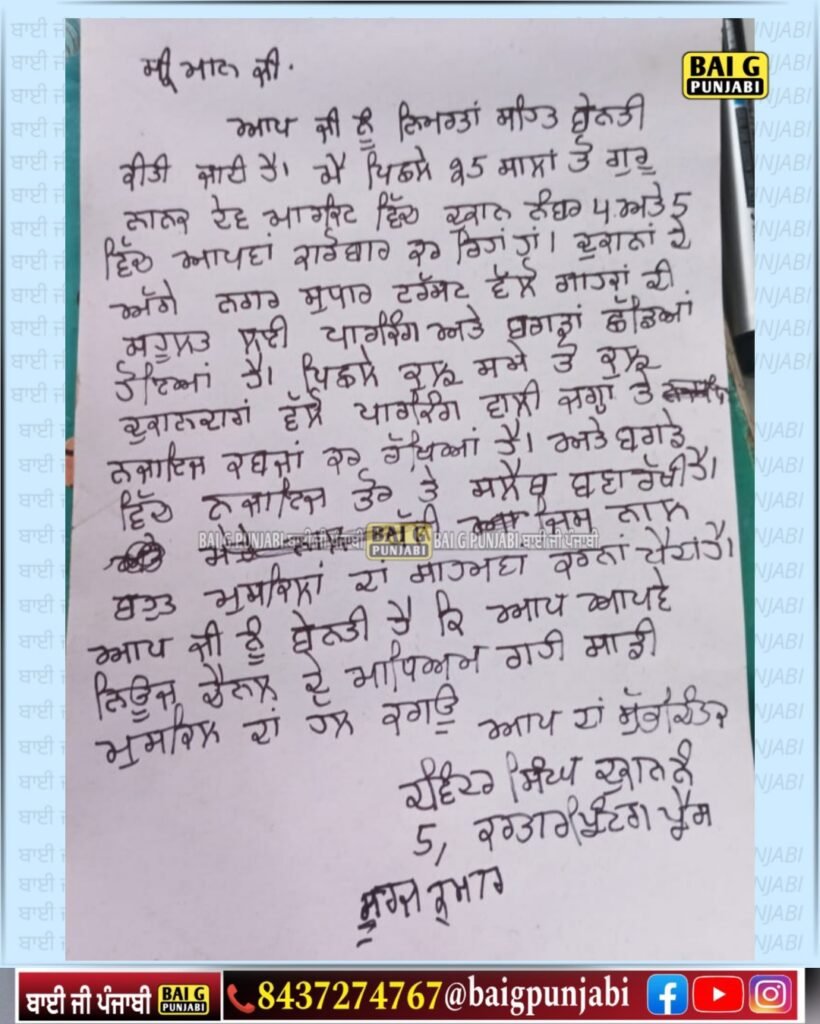 ਸ਼੍ਰੀ ਮਾਨ ਜੀ.
BAI G
PUNJABI
ਆਪ ਜੀ ਨੂੰ ਨਿਮਰਤਾਂ ਸਹਿਤ ਬੇਨਤੀ
ਕੀਤੀ ਜਾਦੀ ਹੈ। ਮੈ ਪਿਛਲੇ 25 ਸਾਲਾਂ ਤੋ ਗੁਰੂ
ਨਾਨਕ ਦੇਵ ਮਾਰਕਿਟ ਵਿੱਚ ਦੁਕਾਨ ਨੰਬਰ 4 ਅਤੇ 5
ਵਿੱਚ ਆਪਣਾਂ ਕਾਰੋਬਾਰ ਕਰ ਰਿਹਾਂ ਹਾਂ। ਦੁਕਾਨਾਂ ਦੇ
ਅੱਗੇ ਨਗਰ ਸੁਧਾਰ ਟਰੱਸਟ ਵੱਲੋ ਗਾਹਕਾਂ ਦੀ
ਸਹੂਲਤ ਲਈ ਪਾਰਕਿੰਗ ਅਤੇ ਬਰਾਡਾਂ ਛੱਡਿਆਂ
ਹੋਇਆਂ ਹੈ। ਪਿਛਲੇ ਕੁਝ ਸਮੇ ਤੋ ਕੁਝ
ਦੁਕਾਨਦਾਰਾਂ ਵੱਲੋ ਪਾਰਕਿੰਗ ਵਾਲੀ ਜਗ੍ਹਾਂ ਤੇ
ਨਜਾਇਜ ਕਬਜਾਂ ਕਰ ਰੱਖਿਆਂ ਹੈ। ਅਤੇ ਬਰਾਡੇ
ਵਿੱਚ ਨਜਾਇਜ ਤੌਰ ਤੇ ਸਲੈਬ ਬਣਾ ਰੱਖੀ ਹੈ।
BAI G PUNJABI ਬਾਈ ਜੀ ਪੰਜਾਬੀ BAI G PUNJABI BAI G PUNJABI ਬਾਈ ਜੀ ਪੰਜਾਬੀ
ਜਿਸ ਨਾਲ
ਬਹੁਤ ਮੁਸਕਿਲਾਂ ਦਾਂ ਸਾਹਮਣਾ ਕਰਨਾਂ ਪੈਦਾਂ ਹੈ।
ਆਪ ਜੀ ਨੂੰ ਬੇਨਤੀ ਹੈ ਕਿ ਆਪ ਆਪਣੇ
ਨਿਊਜ ਚੈਨਲ ਦੇ ਮਾਧਿਅਮ ਰਾਹੀ ਸਾਡੀ
ਮੁਸਕਿਲ ਦਾਂ ਹੱਲ ਕਰਾਉ
ਆਪ ਦਾਂ ਸ਼ੁੱਭਚਿੰਤਕ
ਦਵਿੰਦਰ ਸਿੰਘ ਦੁਕਾਨ ਨੰ
5, ਕਰਤਾਰ ਪ੍ਰਿੰਟਿੰਗ ਪ੍ਰੈਸ
ਸੂਰਜ ਕੁਮਾਰ
ਬਾਈ ਜੀ ਪੰਜਾਬੀ BAI G PUNJABI 8437274767 @baigpunjabi